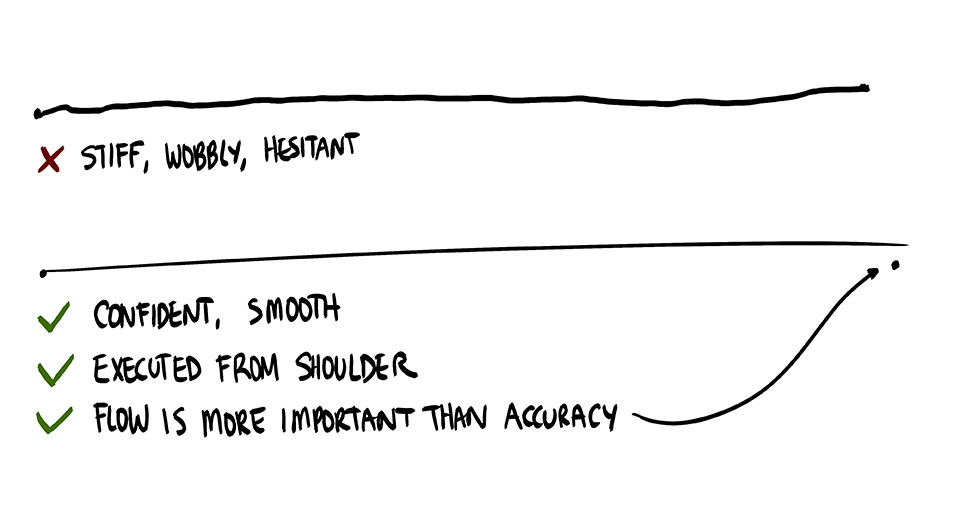 STIFF, WOBBLY, HESITANT
CONFIDENT, SMOOTH
EXECUTED FROM SHOULDER
FLOW IS MORE IMPORTANT THAN ACCURACY